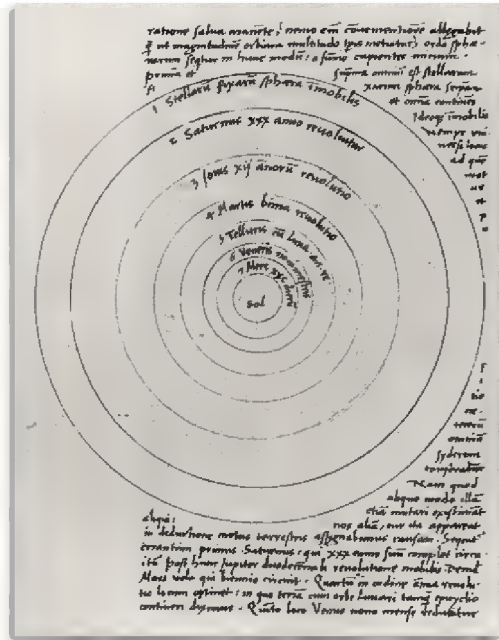 ratione salua manente, nemo em̄ conuenientiorē allegabit
ꝗ ut magnitudinē orbium multitudo tp̄is metiatur, ordo sphæ-
rarum sequitur in hunc modū: a summo capientes initium.
prima et suprema omniū est stellarum
fixarum sphæra seipsam
et omnia continens
Ideoqꝫ imobilis
nempe uni-
uersi locus
ad quē
1 Stellarū fixarū sphæra imobilis
2 Saturnus xxx anno reuoluitur
3 Jouis xij annorū reuolutio
4 Martis bima reuolutio
5 Telluris cū luna an. re.
6 Veneris nonimestris
7 Merc. xxc dierū
sol
syderum
Nam quod
aliquo modo illā
etiā mutari existimāt
aliqui: nos aliā, cur ita appareat
in deductione motus terrestris assignabimus causam. Sequit̄
errantium primus Saturnus: qui xxx anno suū complet circu-
itū. post hunc Jupiter duodecennali reuolutione mobilis. Deinde
Mars uolo qui biennio circuit. Quartū in ordine annua reuolu-
tio locum optinet: in quo terrā cum orbe lunari tanqꝫ epicyclio
contineri diximus. Quinto loco Venus nono mense reducitur